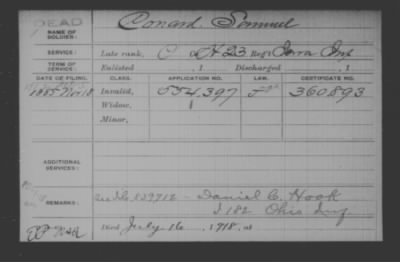 DEAD
NAME OF SOLDIER: Conard, Samuel
SERVICE: Late rank, Co. H 23 Reg't Iowa Inf
TERM OF SERVICE: Enlisted , 1 Discharged , 1
DATE OF FILING. CLASS. APPLICATION NO. LAW. CERTIFICATE NO.
1885 Nov 18 Invalid, 554.397 360.893
Widow,
Minor,
ADDITIONAL SERVICES:
REMARKS: 839712 - Daniel C. Hook
I 182 Ohio Inf
Died July 16, 1918, at